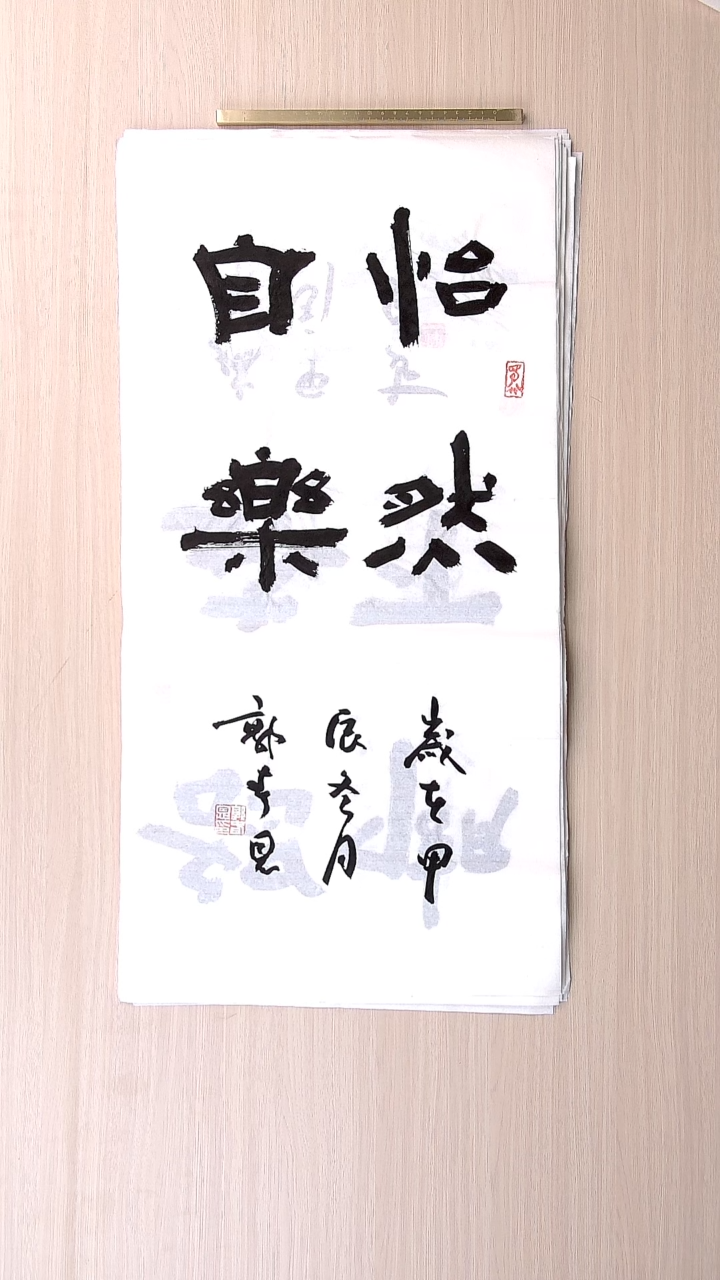 怡然
自樂
歲在甲
辰冬月
郭孝思